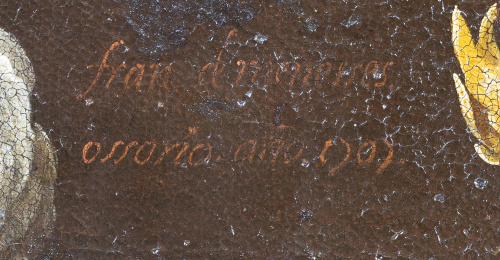 fran d meneses
ossorio. año 1707.